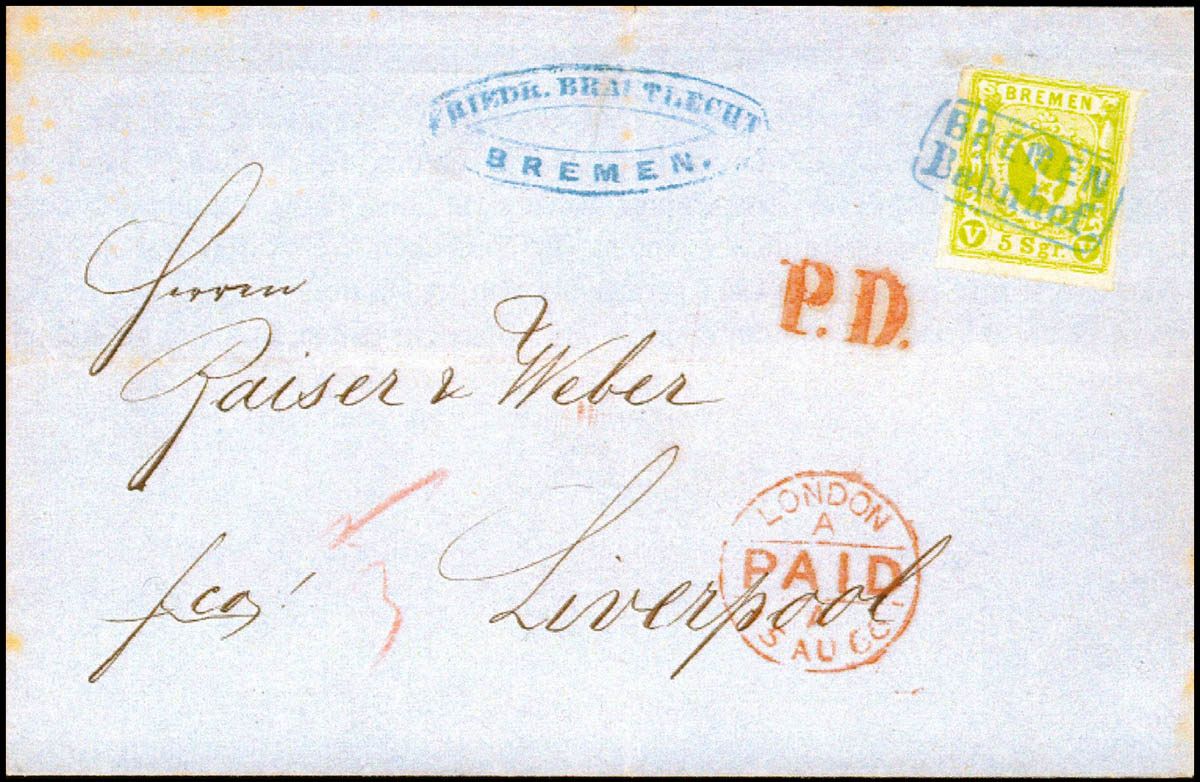 FRIEDR. BRAUTLECHT
BREMEN.
BREMEN
V 5 Sgr. V
BREMEN
Bahnhof.
P. D.
Herren
Kaiser & Weber
fco!
Liverpool
LONDON
A
PAID
AU
3